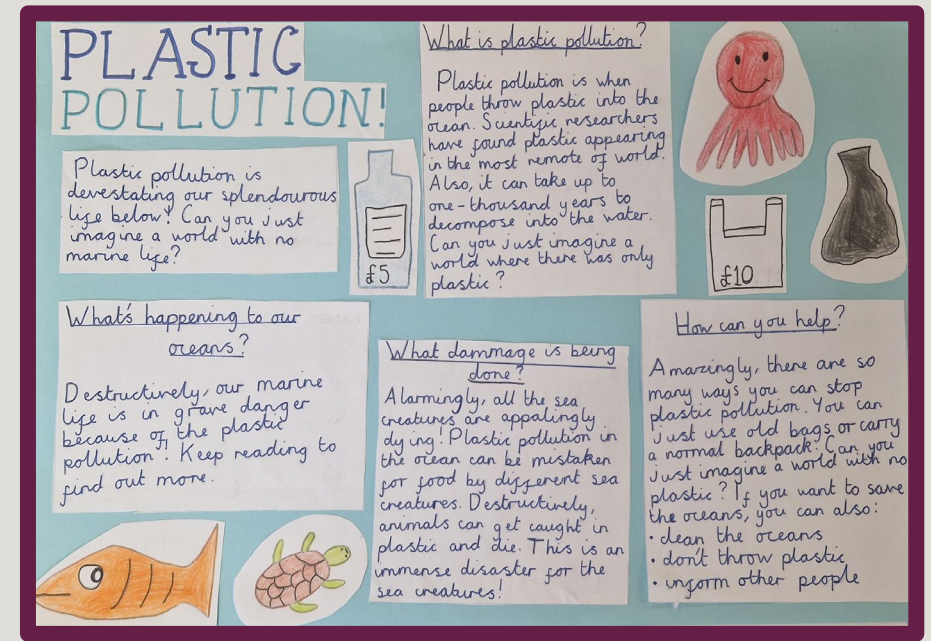 PLASTIC
POLLUTION!
Plastic pollution is
devestating our splendourous
life below! Can you just
imagine a world with no
marine life?
£5
What is plastic pollution?
Plastic pollution is when
people throw plastic into the
ocean. Scientific researchers
have found plastic appearing
in the most remote of world.
Also, it can take up to
one-thousand years to
decompose into the water.
Can you just imagine a
world where there was only
plastic?
£10
What's happening to our
oceans?
Destructively, our marine
life is in grave danger
because of the plastic
pollution! Keep reading to
find out more.
What dammage is being
done?
Alarmingly, all the sea
creatures are appalingly
dying! Plastic pollution in
the ocean can be mistaken
for food by different sea
creatures. Destructively,
animals can get caught in
plastic and die. This is an
immense disaster for the
sea creatures!
How can you help?
Amazingly, there are so
many ways you can stop
plastic pollution. You can
just use old bags or carry
a normal backpack. Can you
just imagine a world with no
plastic? If you want to save
the oceans, you can also:
• clean the oceans
• don't throw plastic
• inform other people